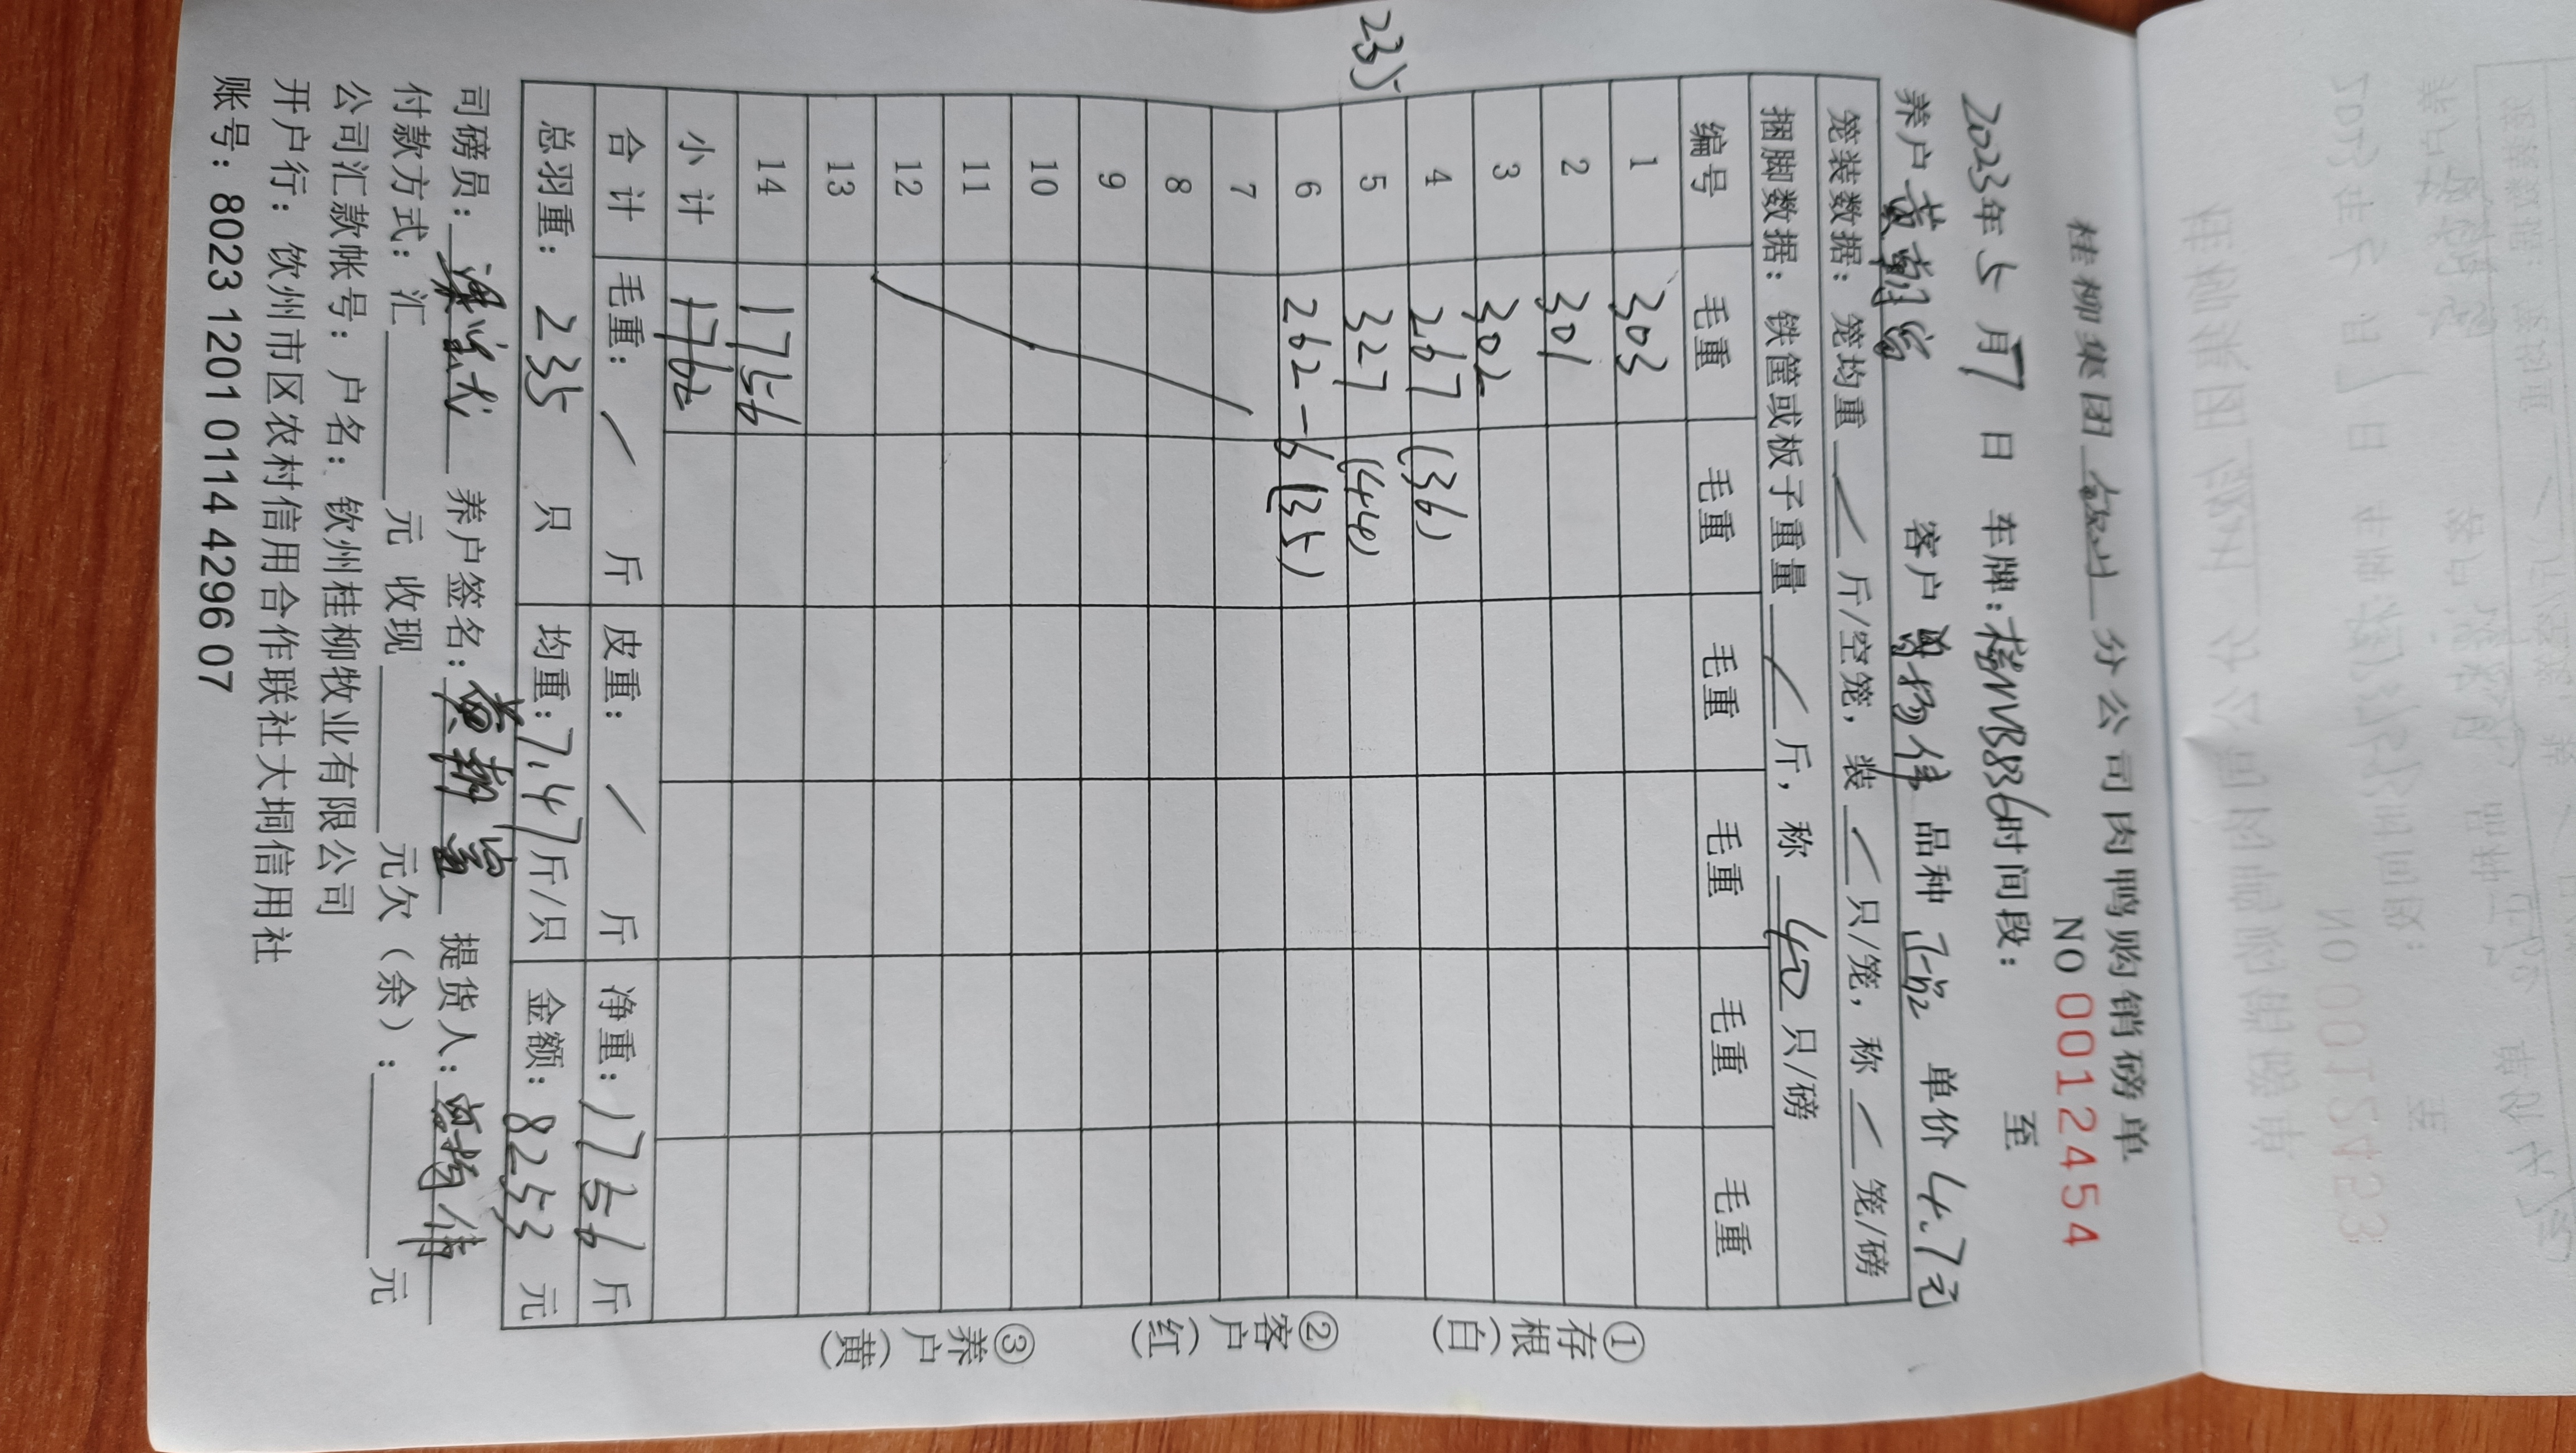 桂柳集团 分公司肉鸭购销磅单
NO 00012454
2023年5月7日 车牌:桂NVB836时间段: 至
养户黄翱 客户 扬伟 品种 正品 单价4.7元
笼装数据: 笼均重 / 斤/空笼, 装 / 只/笼, 称 / 笼/磅
捆脚数据: 铁筐或板子重量 / 斤, 称 40 只/磅
编号 毛重 毛重 毛重 毛重 毛重 毛重
1 303
2 301
3 302
4 267 (36)
5 327 (44)
235
6 262-6 (35)
7
8
9
10
11
12
13
14 1756
小计 1762
合计 毛重: / 斤 皮重: / 斤 净重: 1756 斤
总羽重: 235 只 均重: 7.47斤/只 金额: 8253 元
①存根(白) ②客户(红) ③养户(黄)
司磅员: 养户签名: 黄翱 提货人: 扬伟
付款方式: 汇 元 收现 元欠(余): 元
公司汇款帐号: 户名: 钦州桂柳牧业有限公司
开户行: 钦州市区农村信用合作联社大垌信用社
账号: 8023 1201 0114 4296 07